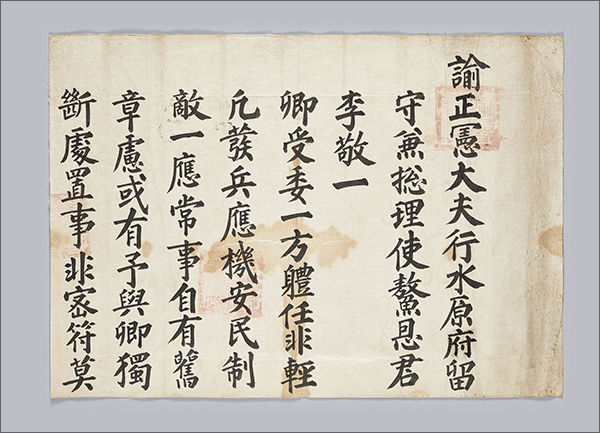 諭正憲大夫行水原府留
守兼摠理使鰲恩君
李敬一
卿受委一方軆任非輕
凡發兵應機安民制
敵一應常事自有舊
章慮或有予與卿獨
斷處置事非密符莫